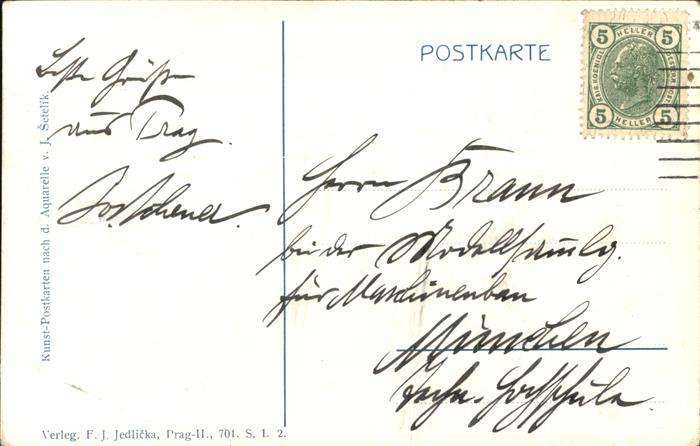 POSTKARTE
Beste Grüße
aus Prag.
Herrn Braun
bei der Modellsammlg.
für Maschinenbau
München
Techn. Hochschule.
Kunst-Postkarten nach d. Aquarelle v. J. Šetelík.
Verleg. F. J. Jedlička, Prag-II., 701. S. I. 2.
5 HELLER 5
5 HELLER 5